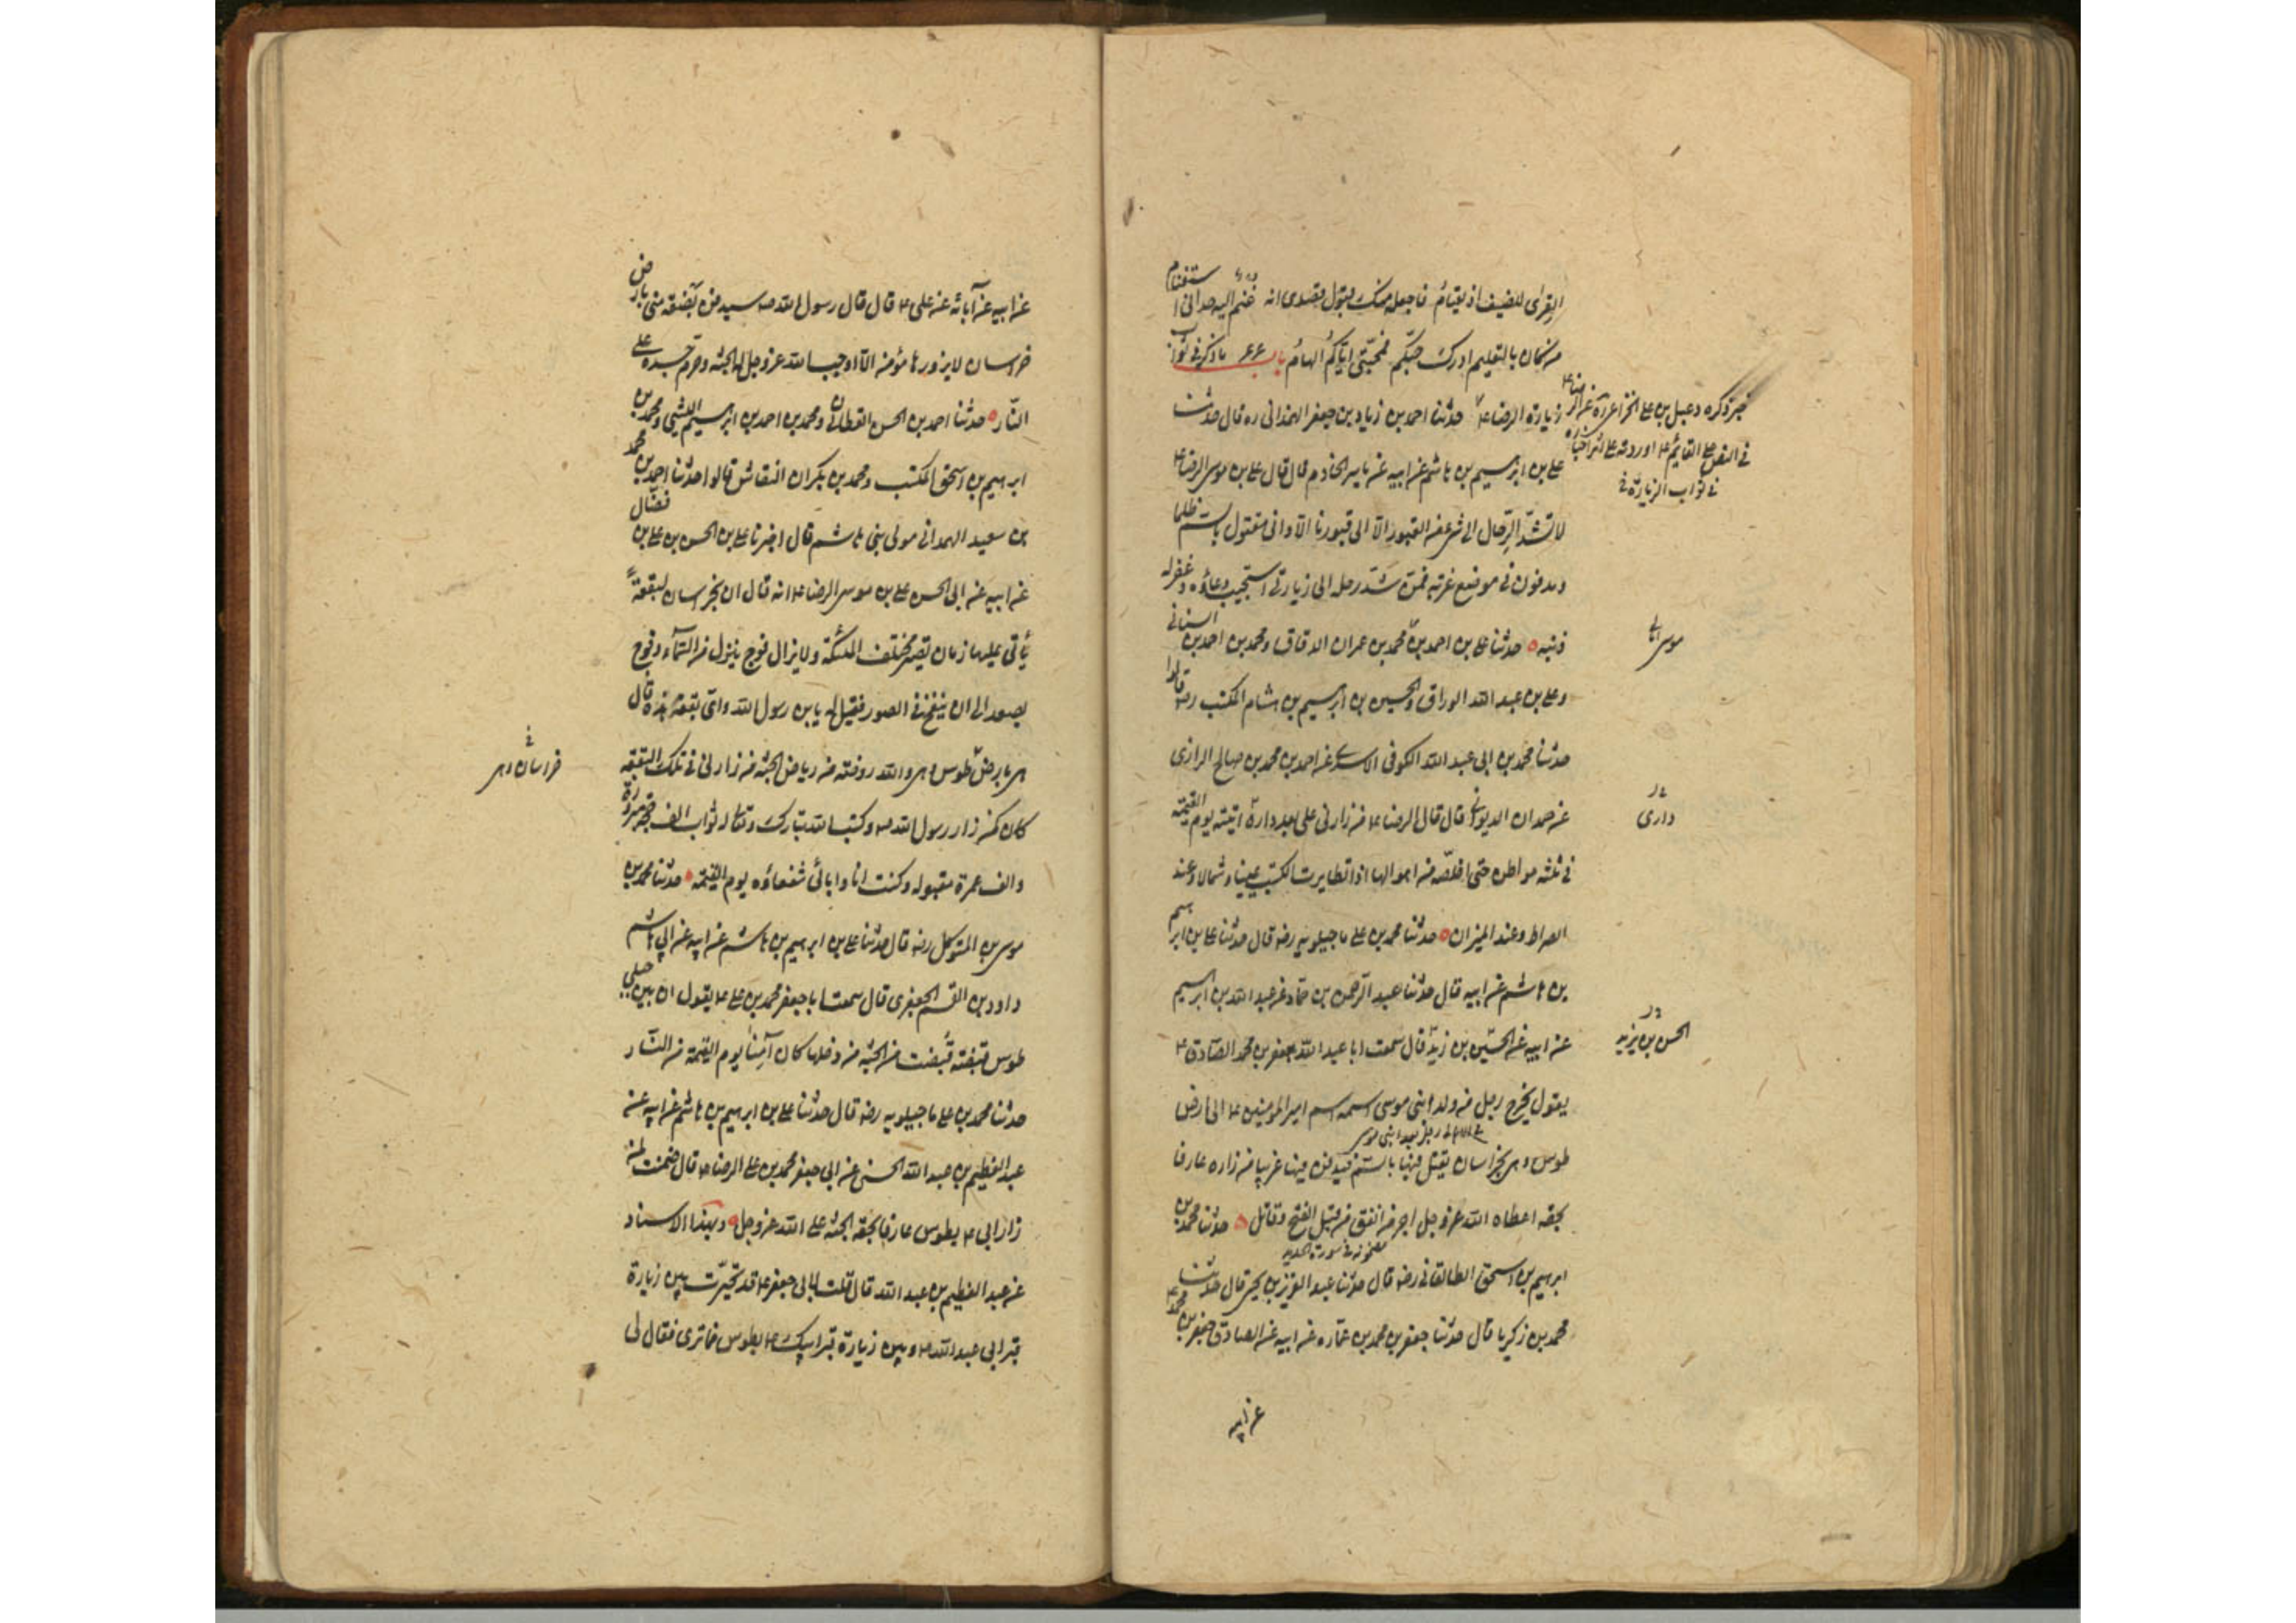 القرى للضيف اذ يعتام فاجعله منك قبول قصدى انه غنم اليه حدانى استغنام
من كان بالتعليم ادرك حبكم فمحبتى اياكم الهام باب ۶۶ ما ذكر فى ثواب
زيارة الرضا ع حدثنا احمد بن زياد بن جعفر الهمدانى ره قال حدثنا
على بن ابرهيم بن هاشم عن ابيه عن ياسر الخادم قال قال على بن موسى الرضا ع
لا تشد الرحال الى شىء من القبور الا الى قبورنا الا وانى مقتول بالسم ظلما
ومدفون فى موضع غربة فمن شد رحله الى زيارتى استجيب دعاؤه وغفر له
ذنبه حدثنا على بن احمد بن محمد بن عمران الدقاق ومحمد بن احمد بن السنانى
وعلى بن عبد الله الوراق والحسين بن ابرهيم بن هشام المكتب رضه قالوا
حدثنا محمد بن ابى عبد الله الكوفى الاسدى عن احمد بن محمد بن صالح الرازى
عن حمدان الديوانى قال قال الرضا ع من زارنى على بعد دارى اتيته يوم القيمة
فى ثلثة مواطن حتى اخلصه من اهوالها اذا تطايرت الكتب يمينا وشمالا وعند
الصراط وعند الميزان حدثنا محمد بن على ماجيلويه رضه قال حدثنا على بن ابرهيم
بن هاشم عن ابيه قال حدثنا عبد الرحمن بن حماد عن عبد الله بن ابرهيم
عن ابيه عن الحسين بن زيد قال سمعت ابا عبد الله جعفر بن محمد الصادق ع
يقول يخرج رجل من ولد ابنى موسى اسمه اسم امير المؤمنين ع الى ارض
طوس وهى بخراسان يقتل فيها بالسم فيدفن فيها غريبا من زاره عارفا
بحقه اعطاه الله عز وجل اجر من انفق من قبل الفتح وقاتل حدثنا محمد بن
مضمونه فى سورة الحديد
ابرهيم بن اسحق الطالقانى رضه قال حدثنا عبد العزيز بن يحيى قال حدثنا
محمد بن زكريا قال حدثنا جعفر بن محمد بن عمارة عن ابيه عن الصادق جعفر بن محمد ع
عن ابيه
خبر ذكره دعبل بن على الخزاعى ره عن الرضا ع
فى النص على القايم ع اوردته على اثر اخباره
فى ثواب الزيارة
موسى
دارى
الحسن بن يزيد
عن ابيه عن آبائه عن على ع قال قال رسول الله صه ستدفن بضعة منى بارض
خراسان لا يزورها مؤمن الا اوجب الله عز وجل له الجنة وحرم جسده على
النار حدثنا احمد بن الحسن القطان ومحمد بن احمد بن ابرهيم الليثى ومحمد بن
ابرهيم بن اسحق المكتب ومحمد بن بكران النقاش قالوا حدثنا احمد بن محمد
بن سعيد الهمدانى مولى بنى هاشم قال اخبرنا على بن الحسن بن على بن فضال
عن ابيه عن ابى الحسن على بن موسى الرضا ع انه قال ان بخراسان لبقعة
يأتى عليها زمان تصير مختلف الملئكة ولا يزال فوج ينزل من السمآء وفوج
يصعد الى ان ينفخ فى الصور فقيل له يا بن رسول الله واى بقعة هذه قال
هى بارض طوس وهى والله روضة من رياض الجنة من زارنى فى تلك البقعة
كان كمن زار رسول الله صه وكتب الله تبارك وتعالى له ثواب الف حجة مبرورة
والف عمرة مقبولة وكنت انا وابائى شفعاؤه يوم القيمة حدثنا محمد بن
موسى بن المتوكل رضه قال حدثنا على بن ابرهيم بن هاشم عن ابيه عن ابى هاشم
داود بن القسم الجعفرى قال سمعت ابا جعفر محمد بن على ع يقول ان بين جبلى
طوس قبضة قبضت من الجنة من دخلها كان آمنا يوم القيمة من النار
حدثنا محمد بن على ماجيلويه رضه قال حدثنا على بن ابرهيم بن هاشم عن ابيه عن
عبد العظيم بن عبد الله الحسنى عن ابى جعفر محمد بن على الرضا ع قال ضمنت لمن
زار ابى ع بطوس عارفا بحقه الجنة على الله عز وجل وبهذا الاسناد
عن عبد العظيم بن عبد الله قال قلت لابى جعفر ع قد تحيرت بين زيارة
قبر ابى عبد الله ع وبين زيارة قبر ابيك ع بطوس فما ترى فقال لى
خراسان وهى